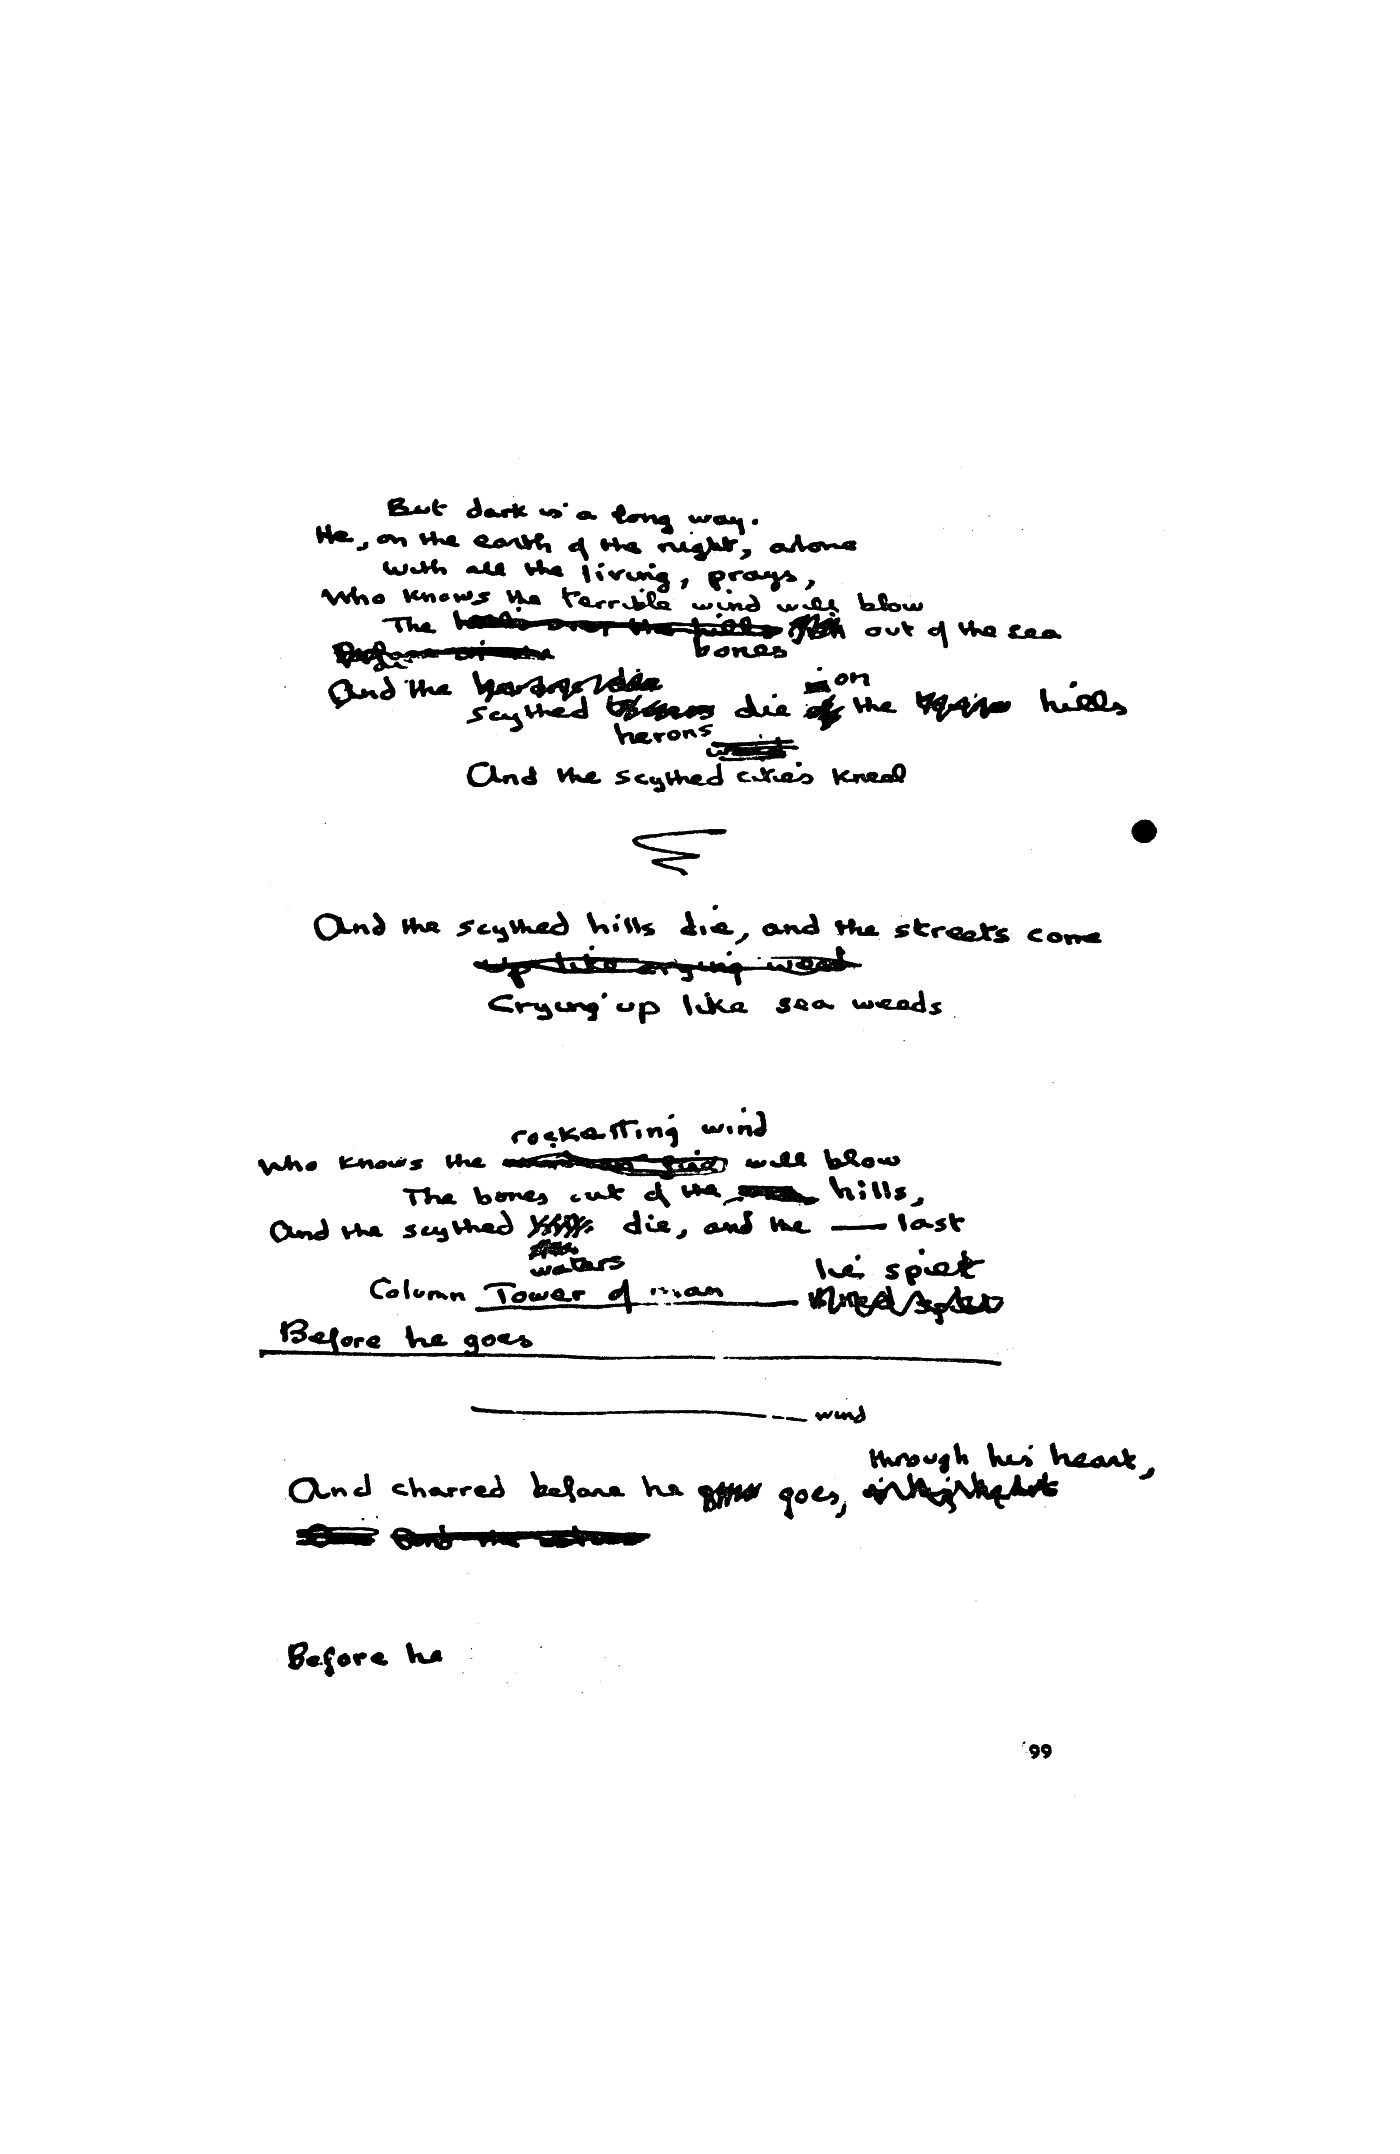 But dark is a long way.
He, on the earth of the night, alone
With all the living, prays,
Who knows the terrible wind will blow
The out of the sea
bones
And the
on
scythed die the hills
herons
And the scythed cities kneel
And the scythed hills die, and the streets come
up like crying weed
Crying up like sea weeds
rocketting wind
Who knows the will blow
The bones out of the hills,
And the scythed die, and the — last
waters
Column Tower of man
Before he goes
wind
through his heart,
And charred before he goes,
Before he
99